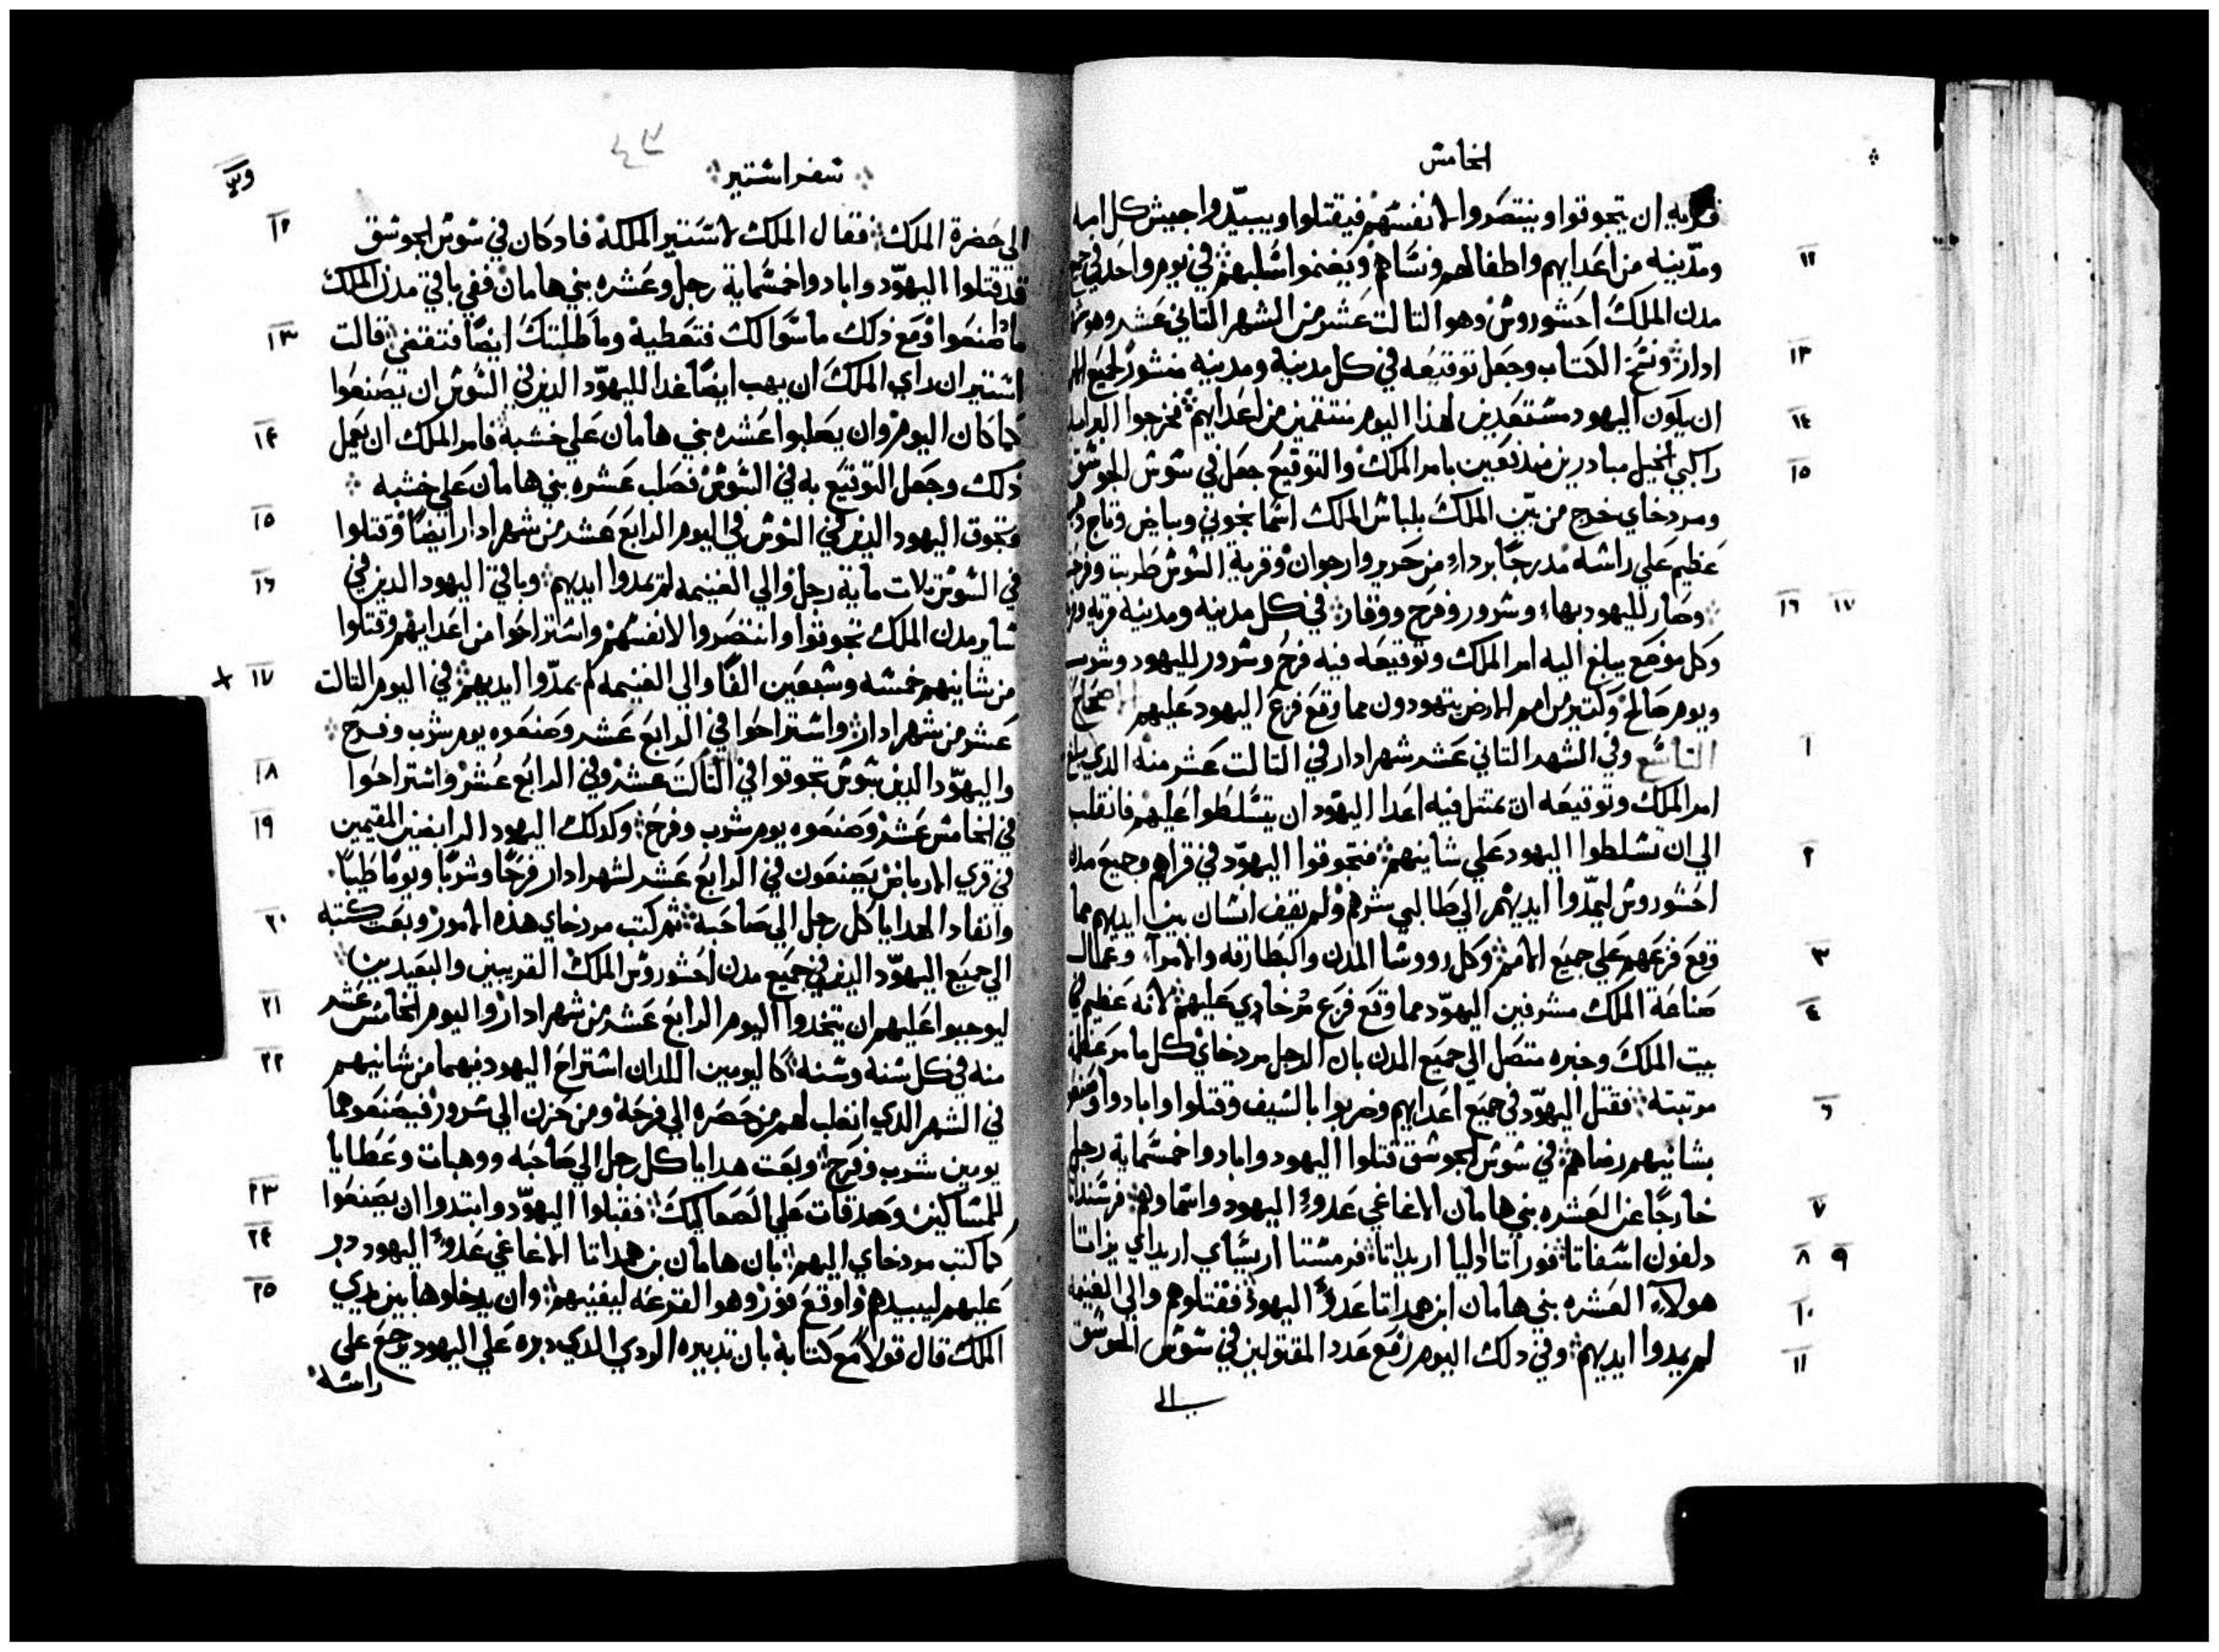 الخامس
قريه ان يتجوقوا وينتصروا لانفسهم فيقتلوا ويبيدوا جيش كل امه
ومدينه من اعدايهم واطفالهم ونساهم ويغنموا سلبهم في يوم واحد في جميع
١٢
مدن الملك احشوروش وهو التالت عشر من الشهر التاني عشر وهو شهر
ادار ونسخ الكتاب وجعل توقيعه في كل مدينه ومدينه منشور لجميع
١٣
ان يكون اليهود مستعدين لهذا اليوم منتقمين من اعدايهم فخرجوا
١٤
راكبي الخيل مبادرين مندفعين بامر الملك والتوقيع جعل في شوش الجوشق
١٥
ومردخاي خرج من بين الملك بلباس الملك اسمانجوني وبياض وتاج
عظيم على راسه مدرجا بردا من حرير وارجوان وقرية الشوش طربت وفرحت
وصار لليهود بهاء وسرور وفرح ووقار في كل مدينه ومدينه قريه
١٦ ١٧
وكل موضع يبلغ اليه امر الملك وتوقيعه فيه فرح وسرور لليهود وشرب
ويوم صالح وكتير من امم الارض يتهودون مما وقع فزع اليهود عليهم الاصحاح
التاسع وفي الشهر التاني عشر شهر ادار في التالت عشر منه الدي بلغ
١
امر الملك وتوقيعه ان يمتتل فيه اعدا اليهود ان يتسلطوا عليهم فانقلب
الي ان تسلطوا اليهود علي شانيهم فتجوقوا اليهود في قراهم وجميع مدن
٢
احشوروش ليمدوا ايديهم الي طالبي شرهم ولم يقف انسان بين ايديهم مما
وقع فزعهم علي جميع الامم وكل رووسا المدن والبطارقه والامرا وعمال
٣
صناعة الملك مشرفين اليهود مما وقع فزع مردخاي عليهم لانه عظيم في
٤
بيت الملك وخبره متصل الي جميع المدن بان الرجل مردخاي كل ما مر عظمت
مرتبته فقتل اليهود في جميع اعدايهم وضربوا بالسيف وقتلوا وابادوا وصنعوا
٦
بشانيهم رضاهم في شوش الجوشق قتلوا اليهود وابادوا خمسماية رجل
خارجا عن العشره بني هامان الاغاغي عدو اليهود واسماوهم فرشنداتا
٧
دلفون اسفاتا فوراتا ادليا اريداتا فرمشتا اريساي اريداي يزاتا
٨ ٩
هولاء العشره بني هامان ابن همداتا عدو اليهود فقتلوهم والي الغنيمه
١٠
لم يمدوا ايديهم وفي دلك اليوم رفع عدد المقتولين في شوش الجوشق
١١
الي
سفر استير
الي حضرة الملك فقال الملك لاستير الملكة فاد كان في شوش الجوشق
١٢
قد قتلوا اليهود وابادوا خمسماية رجل وعشره بني هامان ففي باقي مدن الملك
ما صنعوا ومع دلك ما سوالك فتعطيه وما طلبتك ايضا فتقضي قالت
١٣
استير ان راي الملك ان يهب ايضا غدا لليهود الدين في الشوش ان يصنعوا
كما كان اليوم وان يصلبوا عشره بني هامان علي خشبة فامر الملك ان يعمل
١٤
دلك وجعل التوقيع به في الشوش فصلب عشره بني هامان علي خشبه
وتجوق اليهود الدين في الشوش في اليوم الرابع عشر من شهر ادار ايضا وقتلوا
١٥
في الشوش تلات ماية رجل والي الغنيمه لم يمدوا ايديهم وباقي اليهود الدين في
١٦
ساير مدن الملك تجوقوا وانتصروا لانفسهم واستراحوا من اعدايهم وقتلوا
من شانيهم خمسه وسبعين الفا والي الغنيمه لم يمدوا ايديهم في اليوم التالت
١٧
عشر من شهر ادار واستراحوا في الرابع عشر وصنعوه يوم شرب وفرح
واليهود الدين بشوش تجوقوا في التالت عشر وفي الرابع عشر واستراحوا
١٨
في الخامس عشر وصنعوه يوم شرب وفرح وكدلك اليهود الرابضين المقيمين
١٩
في قري الارباض يصنعون في الرابع عشر لشهر ادار فرحا وشربا ويوما طيبا
وانفاد الهدايا كل رجل الي صاحبه تم كتب مردخاي هذه الامور وبعت كتبه
٢٠
الي جميع اليهود الدين في جميع مدن احشوروش الملك القريبين والبعيدين
ليوجبوا عليهم ان يتخدوا اليوم الرابع عشر من شهر ادار واليوم الخامس عشر
٢١
منه في كل سنة وسنه كاليومين اللدان استراح اليهود فيهما من شانيهم
٢٢
في الشهر الدي انقلب لهم من حصره الي فرحة ومن حزن الي سرور فيصنعوهما
يومين شرب وفرح وبعت هدايا كل رجل الي صاحبه ووهبات وعطايا
للمساكين وصدقات علي الصعاليك فقبلوا اليهود وابتدوا ان يصنعوا
٢٣
كما كتب مردخاي اليهم بان هامان بن همداتا الاغاغي عدو اليهود دبر
٢٤
عليهم ليبيدهم واوقع فوز وهو القرعه ليفنيهم وان بدخلوها بين يدي
٢٥
الملك قال قولا مع كتابة بان تدبيره الردي الدي دبره علي اليهود يرجع على
راسه